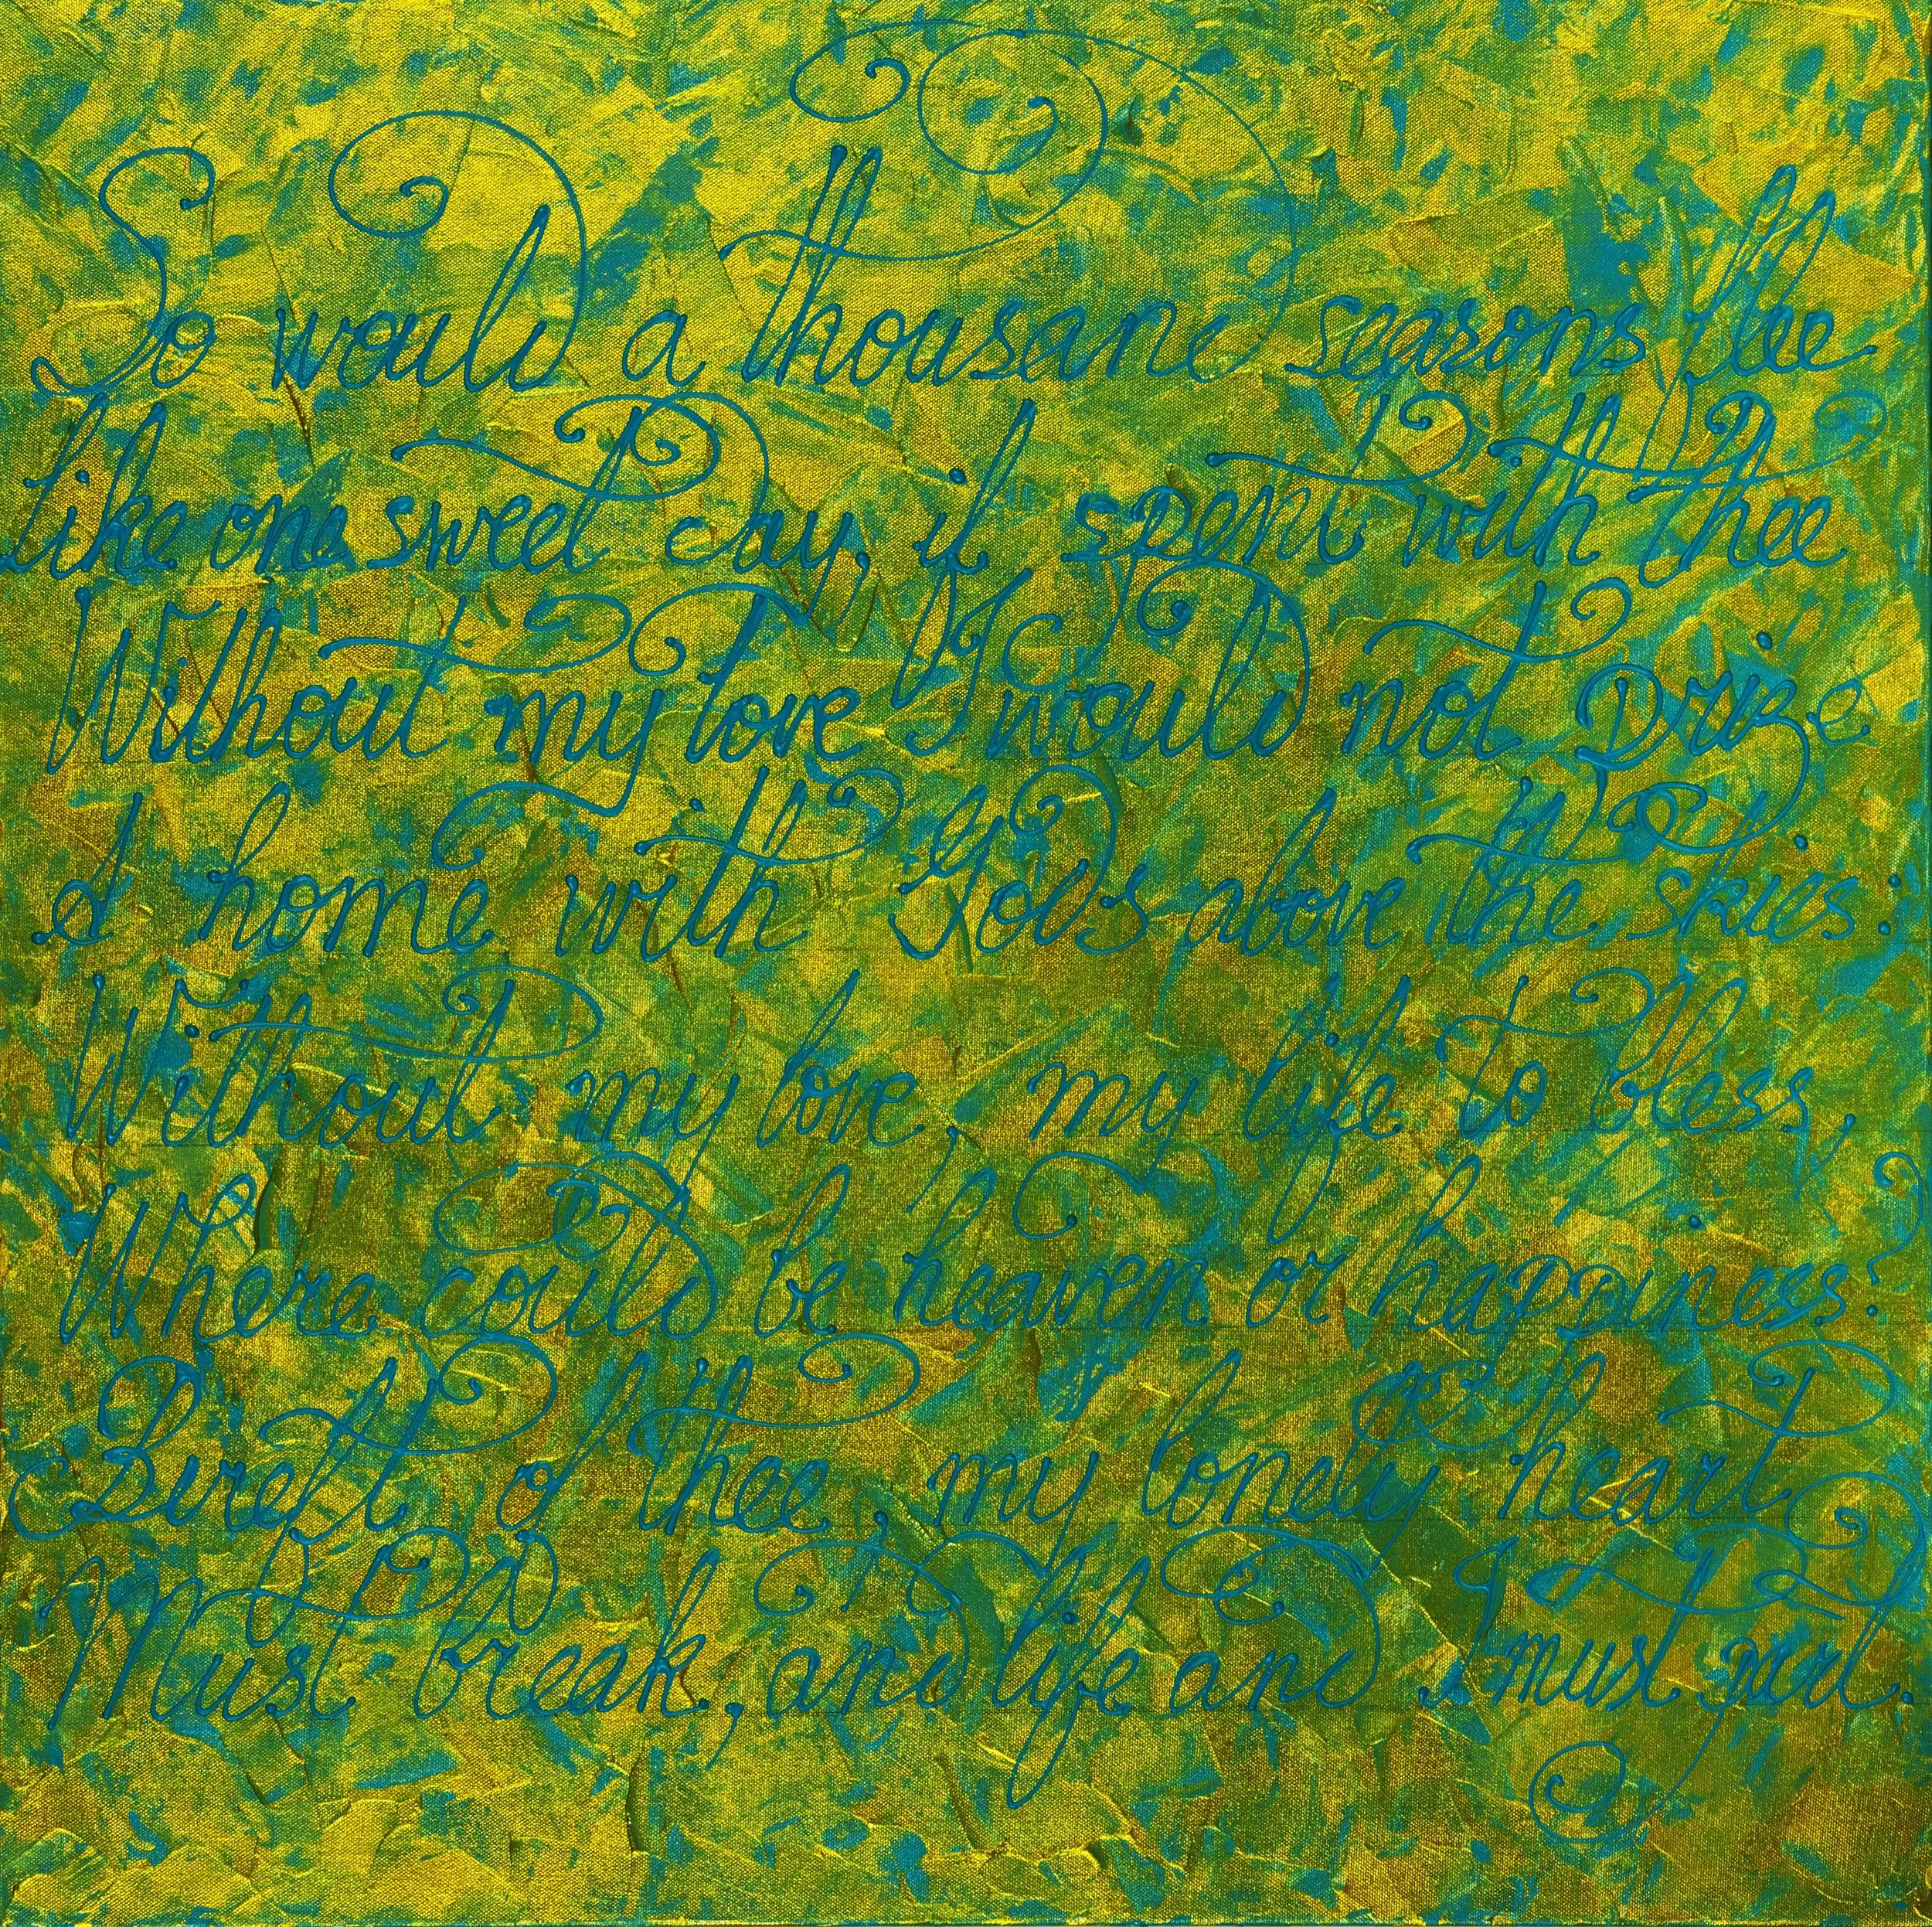 So would a thousand seasons flee
Like one sweet day, if spent with thee
Without my love I would not prize
A home with Gods above the skies.
Without my love, my life to bless,
Where could be heaven or happiness?
Bereft of thee, my lonely heart
Must break, and life and I must part.